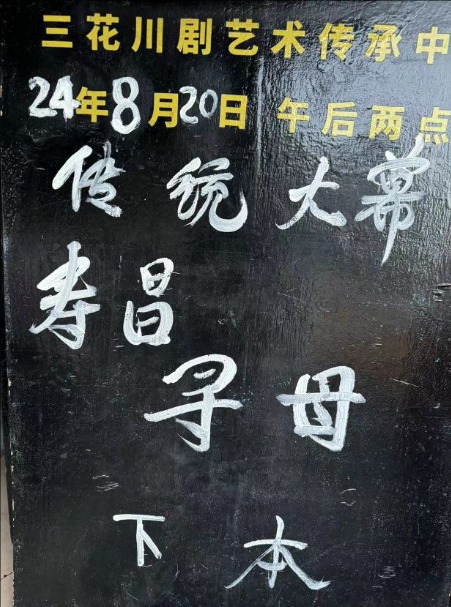 三花川剧艺术传承中
24年8月20日 午后两点
传统大幕
寿昌
寻母
下本